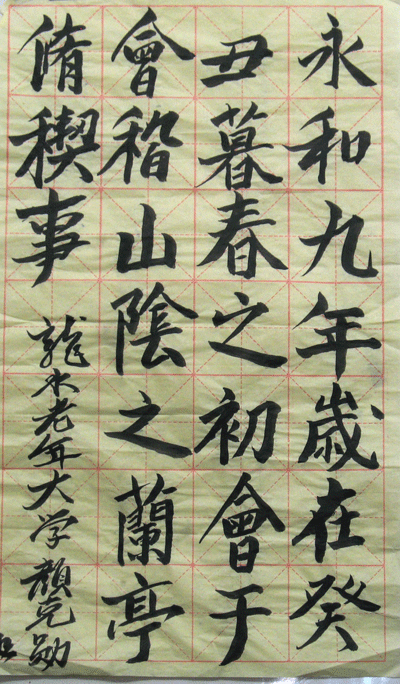 永和九年歲在癸
丑暮春之初會于
會稽山陰之蘭亭
脩稧事
龍水老年大学顏克勋